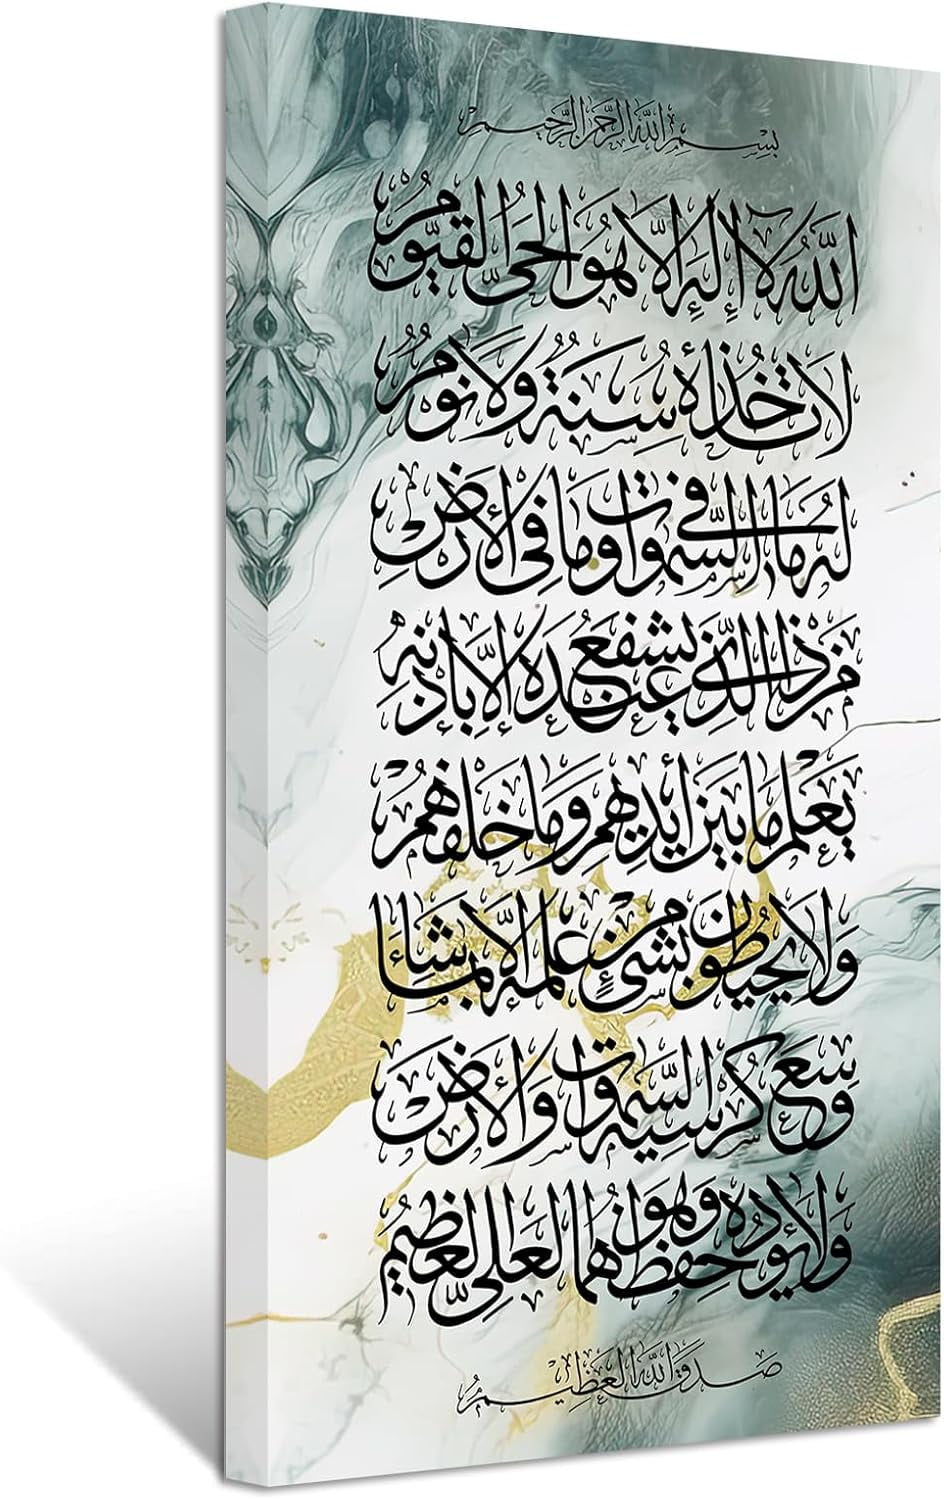 بِسْمِ اللهِ الرَّحْمٰنِ الرَّحِيمِ
اللهُ لَا إِلٰهَ إِلَّا هُوَ الْحَيُّ الْقَيُّومُ
لَا تَأْخُذُهُ سِنَةٌ وَلَا نَوْمٌ
لَهُ مَا فِي السَّمٰوَاتِ وَمَا فِي الْأَرْضِ
مَنْ ذَا الَّذِي يَشْفَعُ عِنْدَهُ إِلَّا بِإِذْنِهِ
يَعْلَمُ مَا بَيْنَ أَيْدِيهِمْ وَمَا خَلْفَهُمْ
وَلَا يُحِيطُونَ بِشَيْءٍ مِنْ عِلْمِهِ إِلَّا بِمَا شَاءَ
وَسِعَ كُرْسِيُّهُ السَّمٰوَاتِ وَالْأَرْضَ
وَلَا يَئُودُهُ حِفْظُهُمَا وَهُوَ الْعَلِيُّ الْعَظِيمُ
صَدَقَ اللهُ الْعَظِيمُ